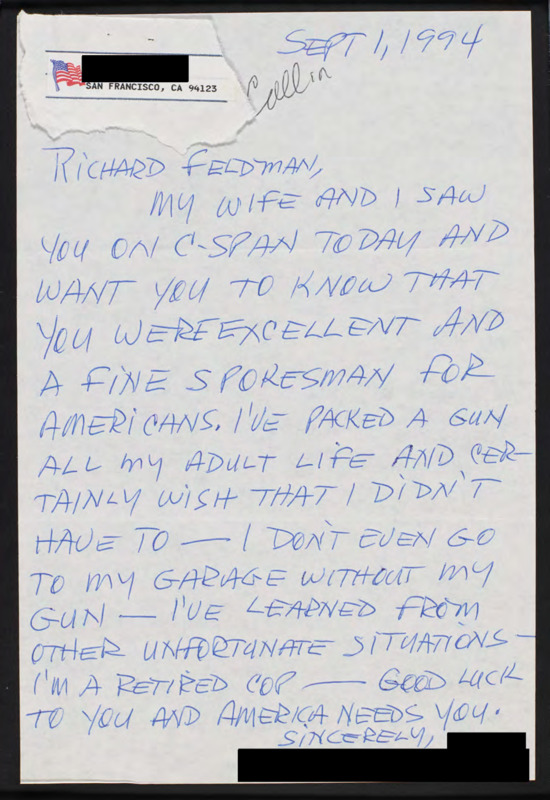 SEPT 1, 1994
SAN FRANCISCO, CA 94123
Call in
RICHARD FELDMAN,
MY WIFE AND I SAW
YOU ON C-SPAN TODAY AND
WANT YOU TO KNOW THAT
YOU WERE EXCELLENT AND
A FINE SPOKESMAN FOR
AMERICANS. I'VE PACKED A GUN
ALL MY ADULT LIFE AND CER-
TAINLY WISH THAT I DIDN'T
HAVE TO — I DON'T EVEN GO
TO MY GARAGE WITHOUT MY
GUN — I'VE LEARNED FROM
OTHER UNFORTUNATE SITUATIONS —
I'M A RETIRED COP — GOOD LUCK
TO YOU AND AMERICA NEEDS YOU.
SINCERELY,